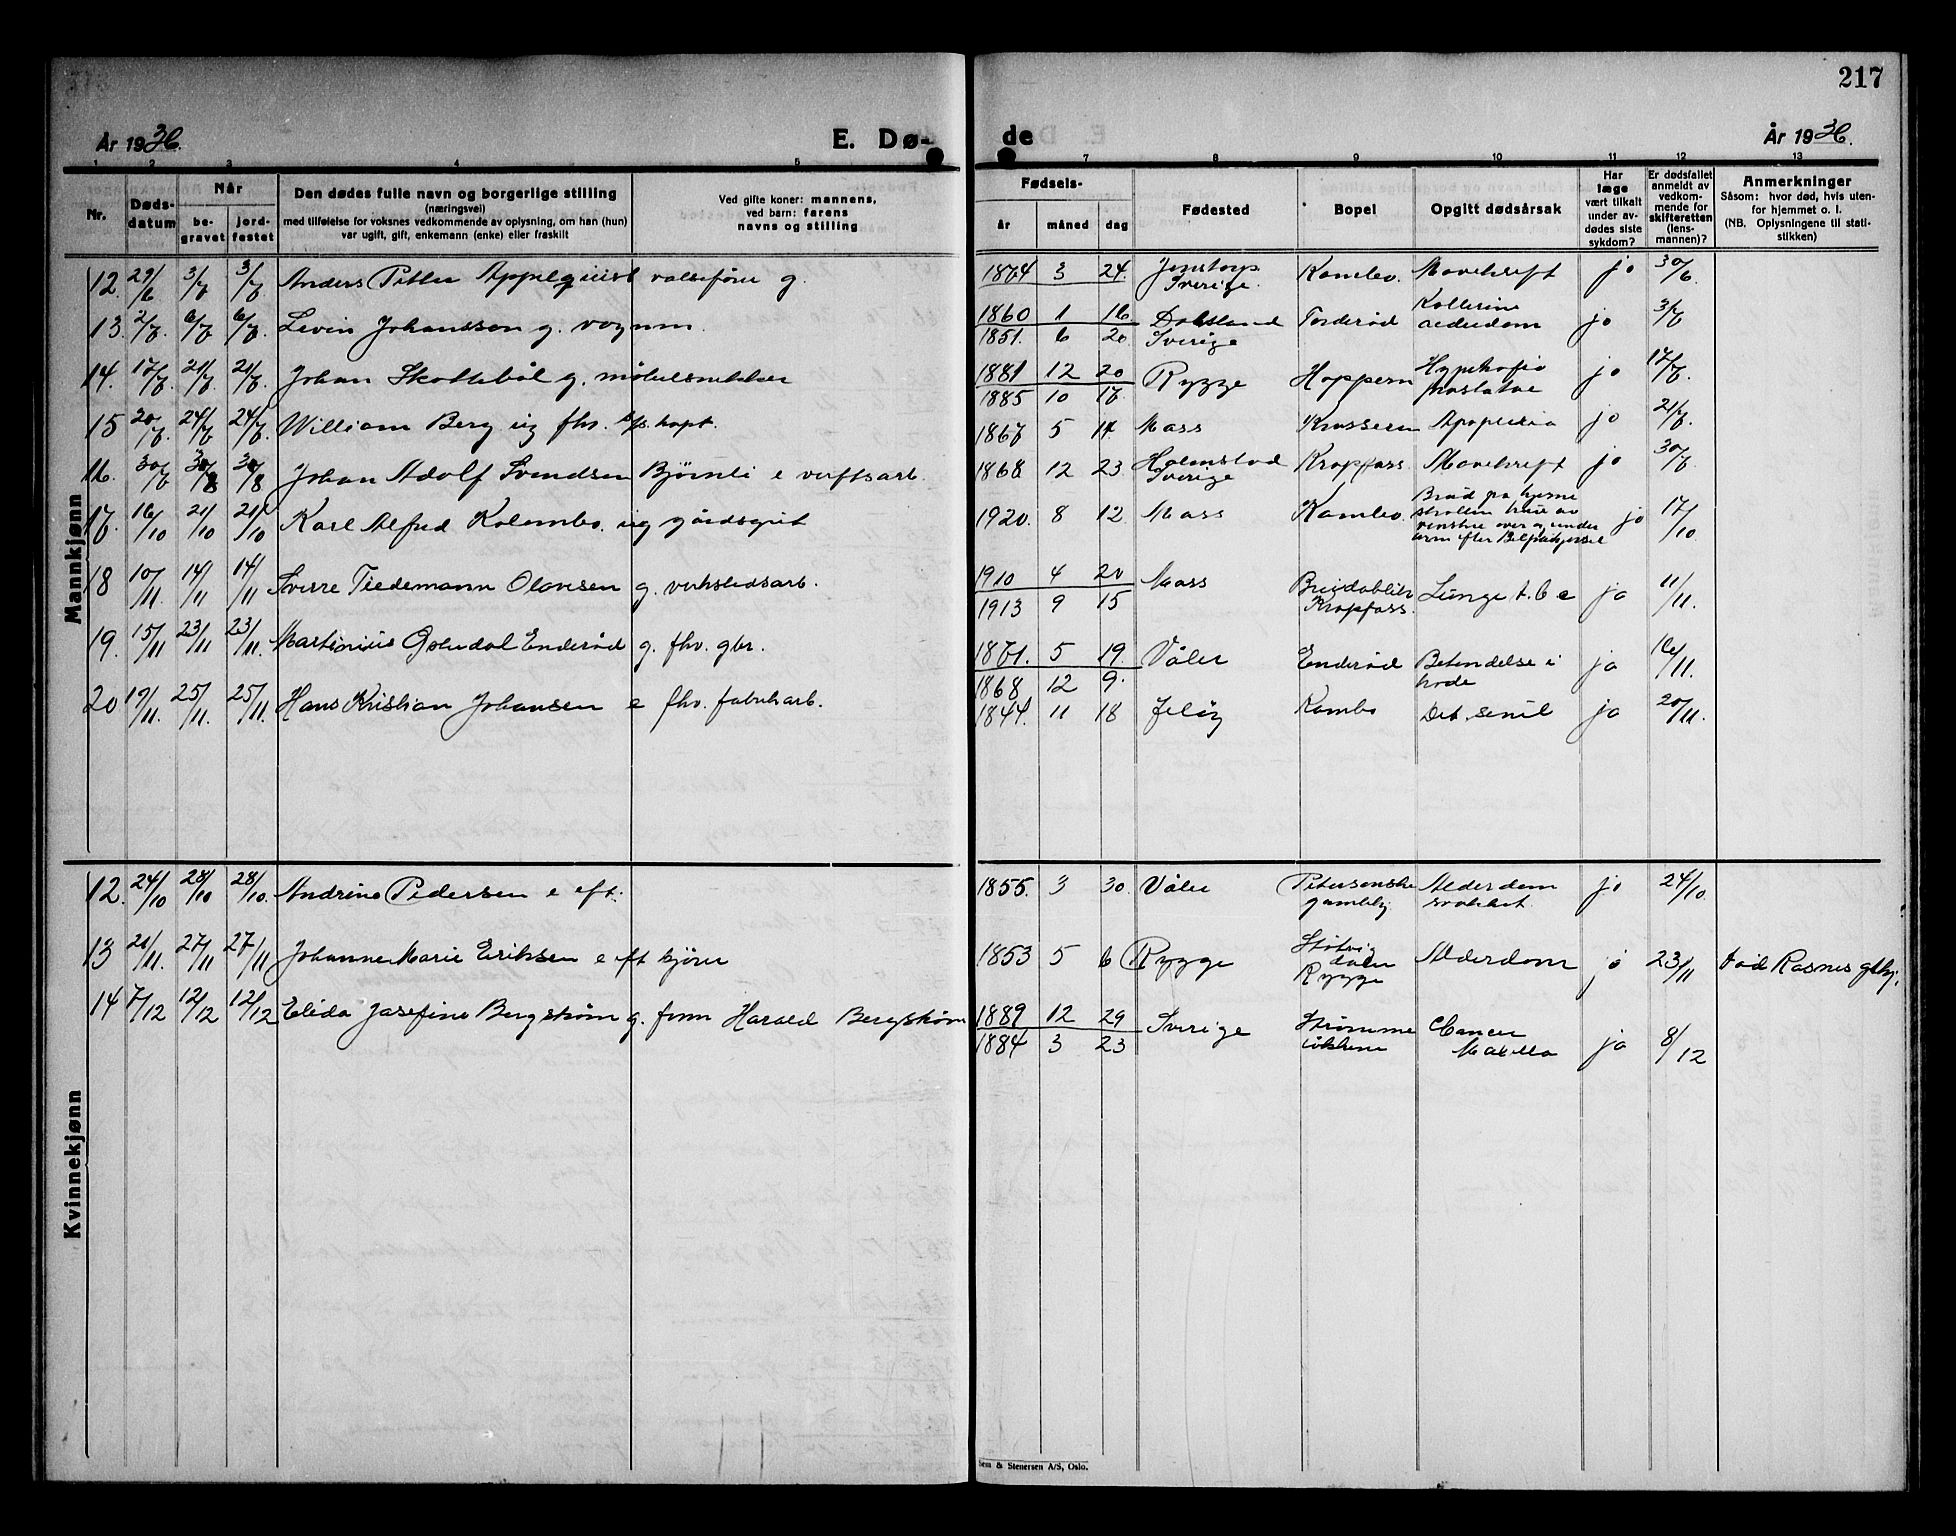 217
År 1936.
E. Dø-
de
År 1936.
1 2 3 4 5
7 8 9 10 11 12 13
Nr.
Døds-
datum
Når
be-
gravet
jord-
festet
Den dødes fulle navn og borgerlige stilling
(næringsvei)
med tilføielse for voksnes vedkommende av oplysning, om han (hun)
var ugift, gift, enkemann (enke) eller fraskilt
Ved gifte koner: mannens,
ved barn: farens
navns og stilling
Fødsels-
år
måned
dag
Fødested
Bopel
Opgitt dødsårsak
Har
læge
vært tilkalt
under av-
dødes siste
sykdom?
Er dødsfallet
anmeldt av
vedkom-
mende for
skifteretten
(lens-
mannen)?
Anmerkninger
Såsom: hvor død, hvis uten-
for hjemmet o. l.
(NB. Oplysningene til stati-
stikken)
Mannkjønn
12. 29/6 3/7 3/7 Anders Petter Applequist valsefører g. 1864 3 24. Sverige. Kambo. Mavekreft ja 30/6.
13. 2/7. 6/7 6/7. Levin Johansson g. vognm. 1860 1 16 Dalsland Torderød alderdom jo 3/7
1851. 6 20 Sverige
14. 17/7. 21/7 21/7. Johan Skottebøl g. møbelsnekker 1881 12 20 Rygge Hoppern Hypertrofia jo 17/7.
1885 10 17. prostatae
15 20/7. 24/7 24/7. William Berg ug fhv. kapt. 1867 5 14. Moss Krossern Apoplexia jo 21/7.
16. 30/7 3/8 3/8 Johan Adolf Svendsen Bjørnli e verftsarb. 1868 12 23 Halmstad Kropfoss. Mavekreft jo 30/7.
Sverige
17. 16/10 21/10 21/10 Karl Alfred Kolombo. ug gårdsgut 1920. 8 12. Moss Kambo. Brud på hjerne jo 17/10.
venstre over og under
arm efter Bilpåkjørsel
18 10/11. 14/11 14/11 Sverre Tiedemann Olavesen g. verkstedsarb. 1910 4 20 Moss Breidablikk Lunge t.b.c ja 11/11.
1913 9 15 Kropfoss.
19. 15/11 23/11 23/11. Martinius Enderød g. fhv. gbr. 1871. 5 19. Våler Enderød Betendelse i ja 16/11.
1868 12 9. hode
20 19/11. 25/11. 25/11. Hans Kristian Johansen e fhv. fabrikarb. 1844. 11 18 Jeløy Kambo Deb. senil ja 20/11.
Kvinnekjønn
12. 24/10 28/10 28/10. Andrine Pedersen e eft. 1855. 3 30. Våler Petersonske Alderdom jo 24/10.
gamlehj. svakhet.
13 21/11. 27/11 27/11 Johanne Marie Eriksen e eft kjører 1853 5 6 Rygge Støtvig Alderdom jo 23/11 død Rosnes glhj.
dalen
Rygge
14 7/12 12/12 12/12 Elida Josefine Bergstrøm g. form Harald Bergstrøm 1889 12 29 Sverige Strømme Cancer ja 8/12
1884 3 23 løkkene Maxilla
Sem & Stenersen A/S, Oslo.